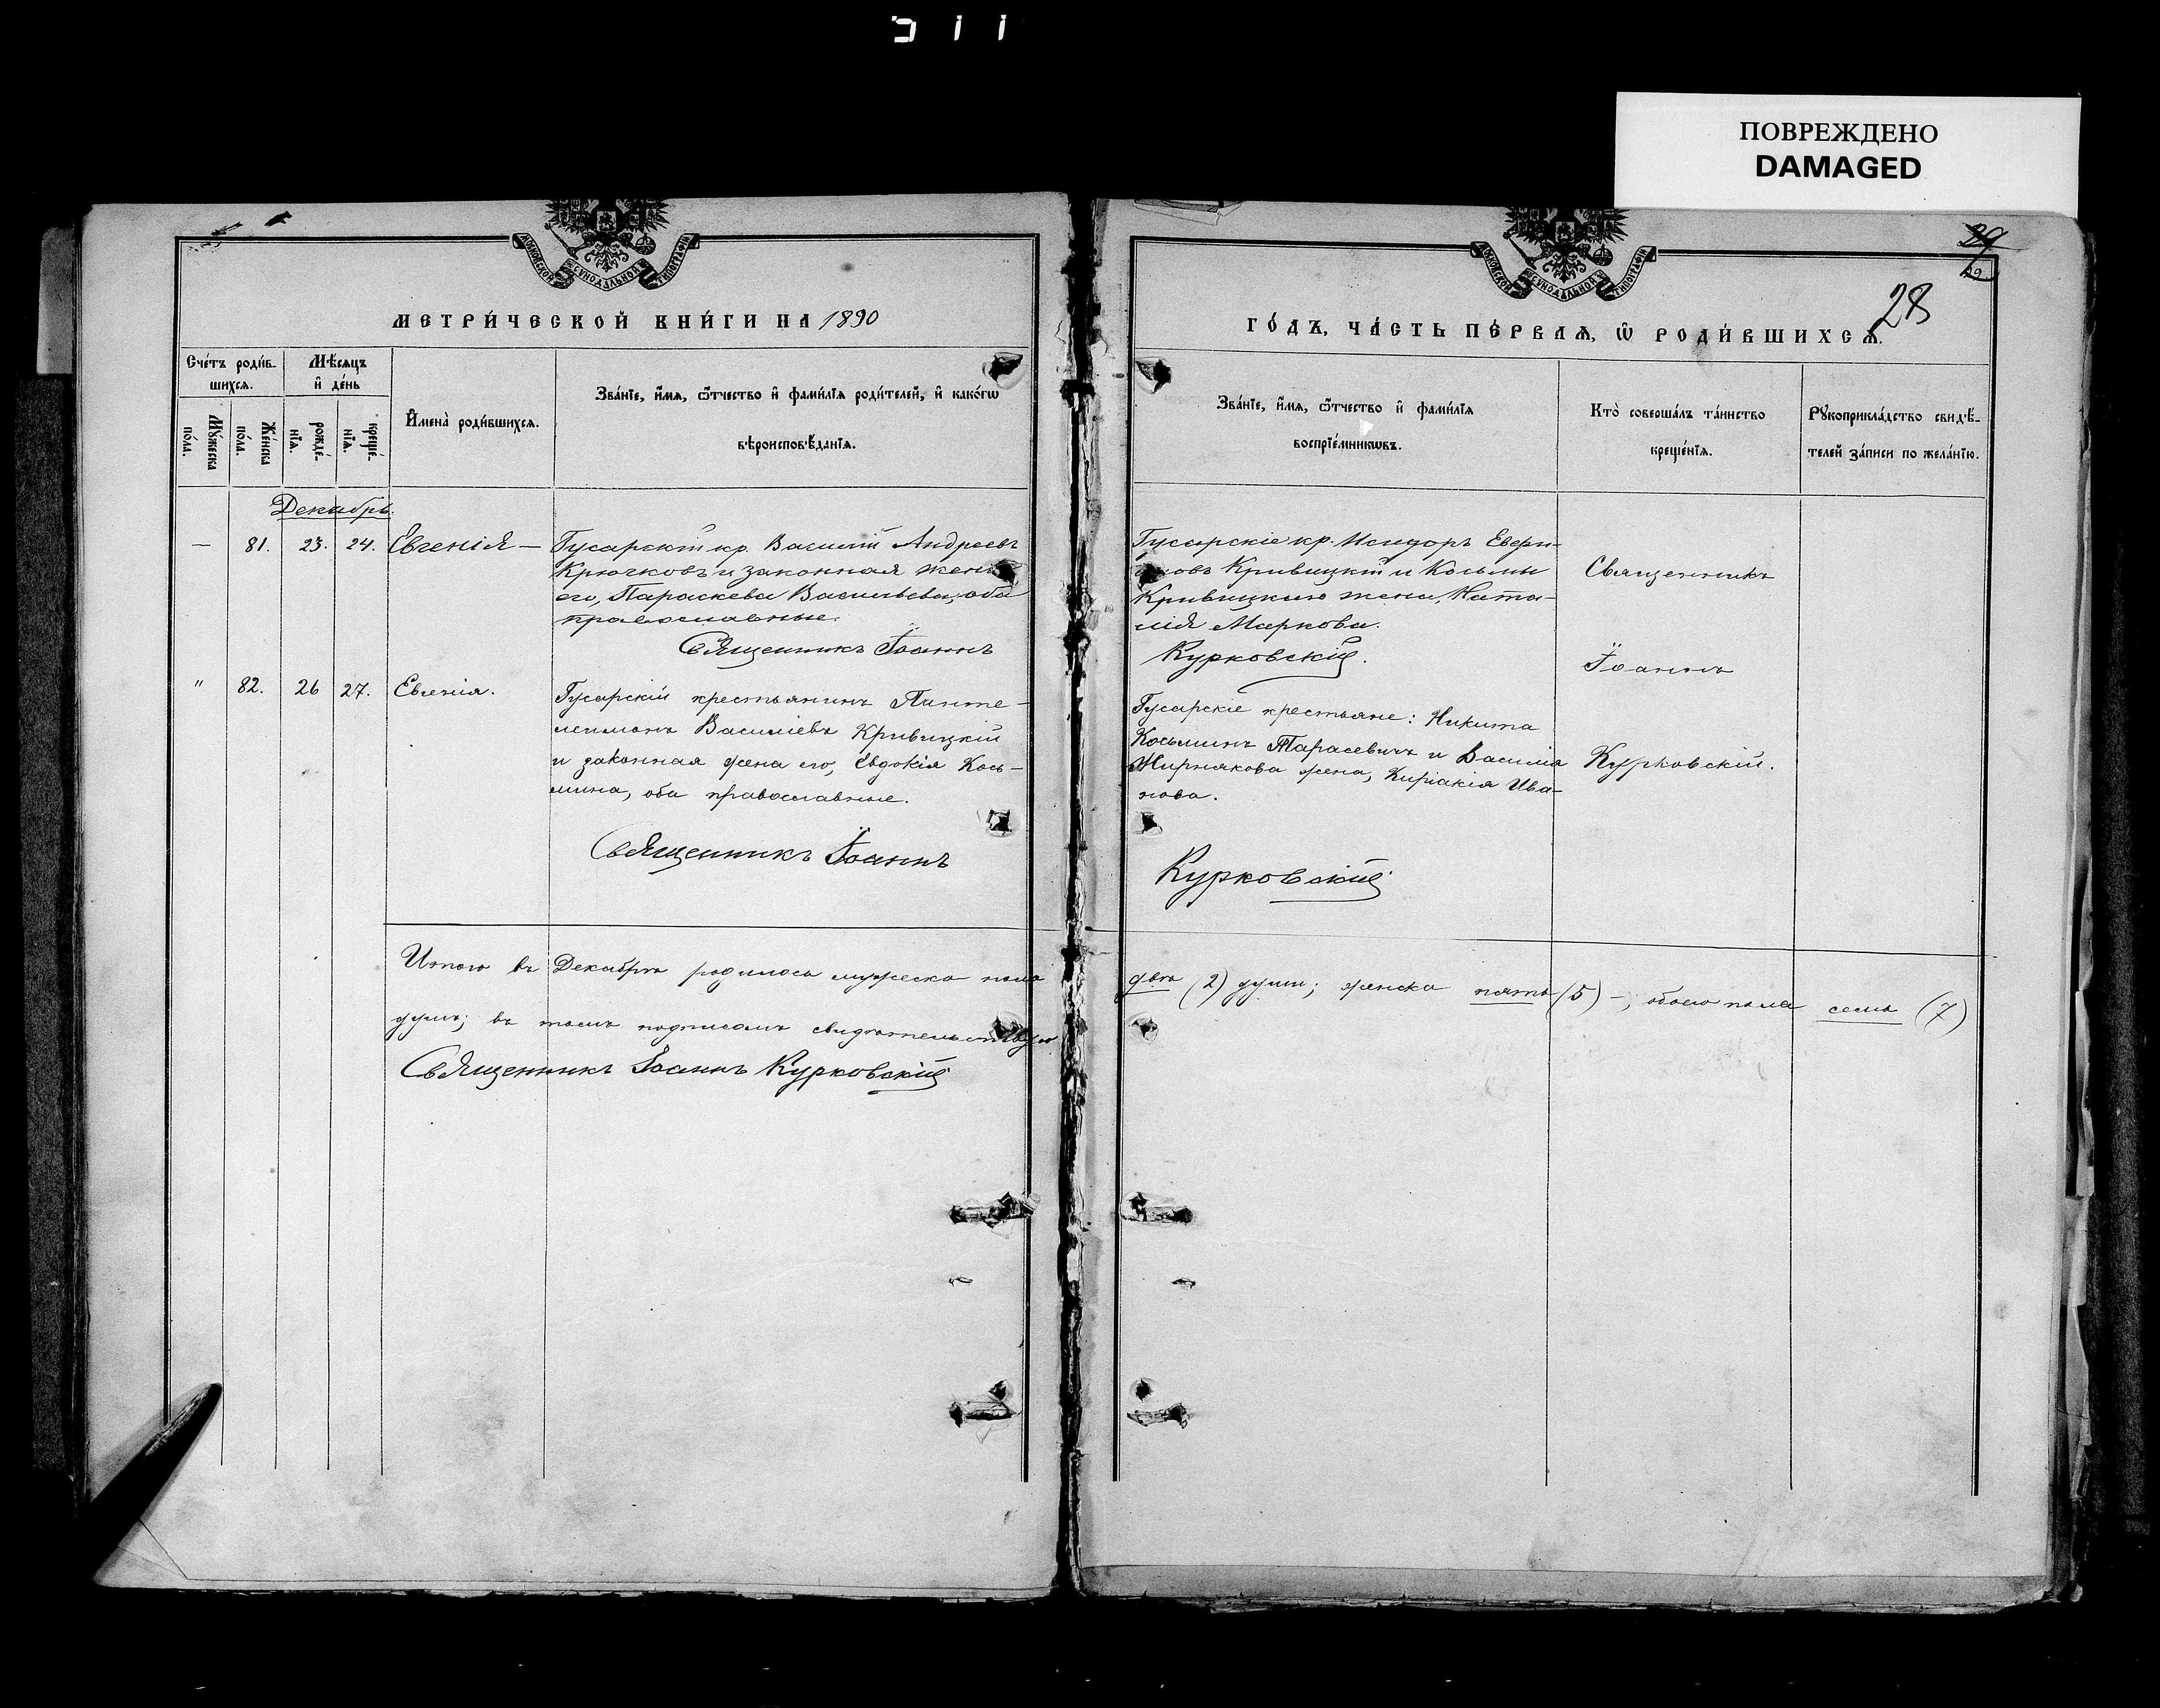 ПОВРЕЖДЕНО
DAMAGED
МОСКОВСКОЙ СУНОДАЛЬНОЙ ТИПОГРАФІИ
МОСКОВСКОЙ СУНОДАЛЬНОЙ ТИПОГРАФІИ
29
29
28
МЕТРИ́ЧЕСКОЙ КНИ́ГИ НА 1890
ГО́ДЪ, ЧА́СТЬ ПЕ́РВАѦ, Ѡ҆ РОДИ́ВШИХСѦ.
Сче́тъ роди́в-
шихсѧ.
Мѣ́сѧцъ
и҆ де́нь
Мꙋ́жеска
по́ла.
Же́нска
по́ла.
рожде́-
нїѧ.
креще́-
нїѧ.
И҆мена̀ роди́вшихсѧ.
Зва́нїе, и҆́мѧ, ѻ҆́тчество и҆ фами́лїѧ роди́телей, и҆ како́гѡ
вѣроисповѣ́данїѧ.
Зва́нїе, и҆́мѧ, ѻ҆́тчество и҆ фами́лїѧ
воспрїе́мникѡвъ.
Кто̀ соверша́лъ та́инство
креще́нїѧ.
Рꙋкоприкла́дство свидѣ́-
телей за́писи по жела́нїю.
Декабрь.
— 81. 23. 24. Евгенія —
Гусарскій кр. Василій Андреевъ
Крючковъ и законная жена
его, Параскева Васильева, оба
православные.
Священникъ Іоаннъ
Гусарскіе кр. Исидоръ
Кривицкій и Косьмы
Кривицкаго жена, Ната-
лія Маркова.
Курковскій.
Священникъ
Іоаннъ
Курковскій.
" 82. 26 27. Евгенія.
Гусарскій крестьянинъ Панте-
леимонъ Василіевъ Кривицкій
и законная жена его, Евдокія Кось-
мина, оба православные.
Священникъ Іоаннъ
Гусарскіе крестьяне: Никита
Косьминъ Тарасевичъ и Василія
Жирнякова жена, Киріакія Ива-
нова.
Курковскій
Итого въ Декабрѣ родилось мужеска пола
двѣ (2) души; женска пять (5) —; обоего пола семь (7)
душъ; въ томъ подписомъ свидѣтельствую
Священникъ Іоаннъ Курковскій